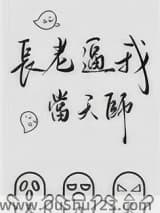 長老逼我
當天師
www.dushu123.com